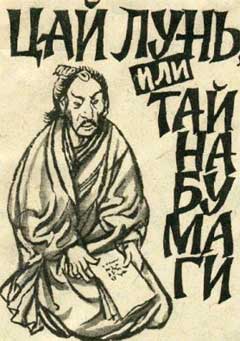 ЦАЙ ЛУНЬ,
ИЛИ
ТАЙ
НА
БУ
МА
ГИ